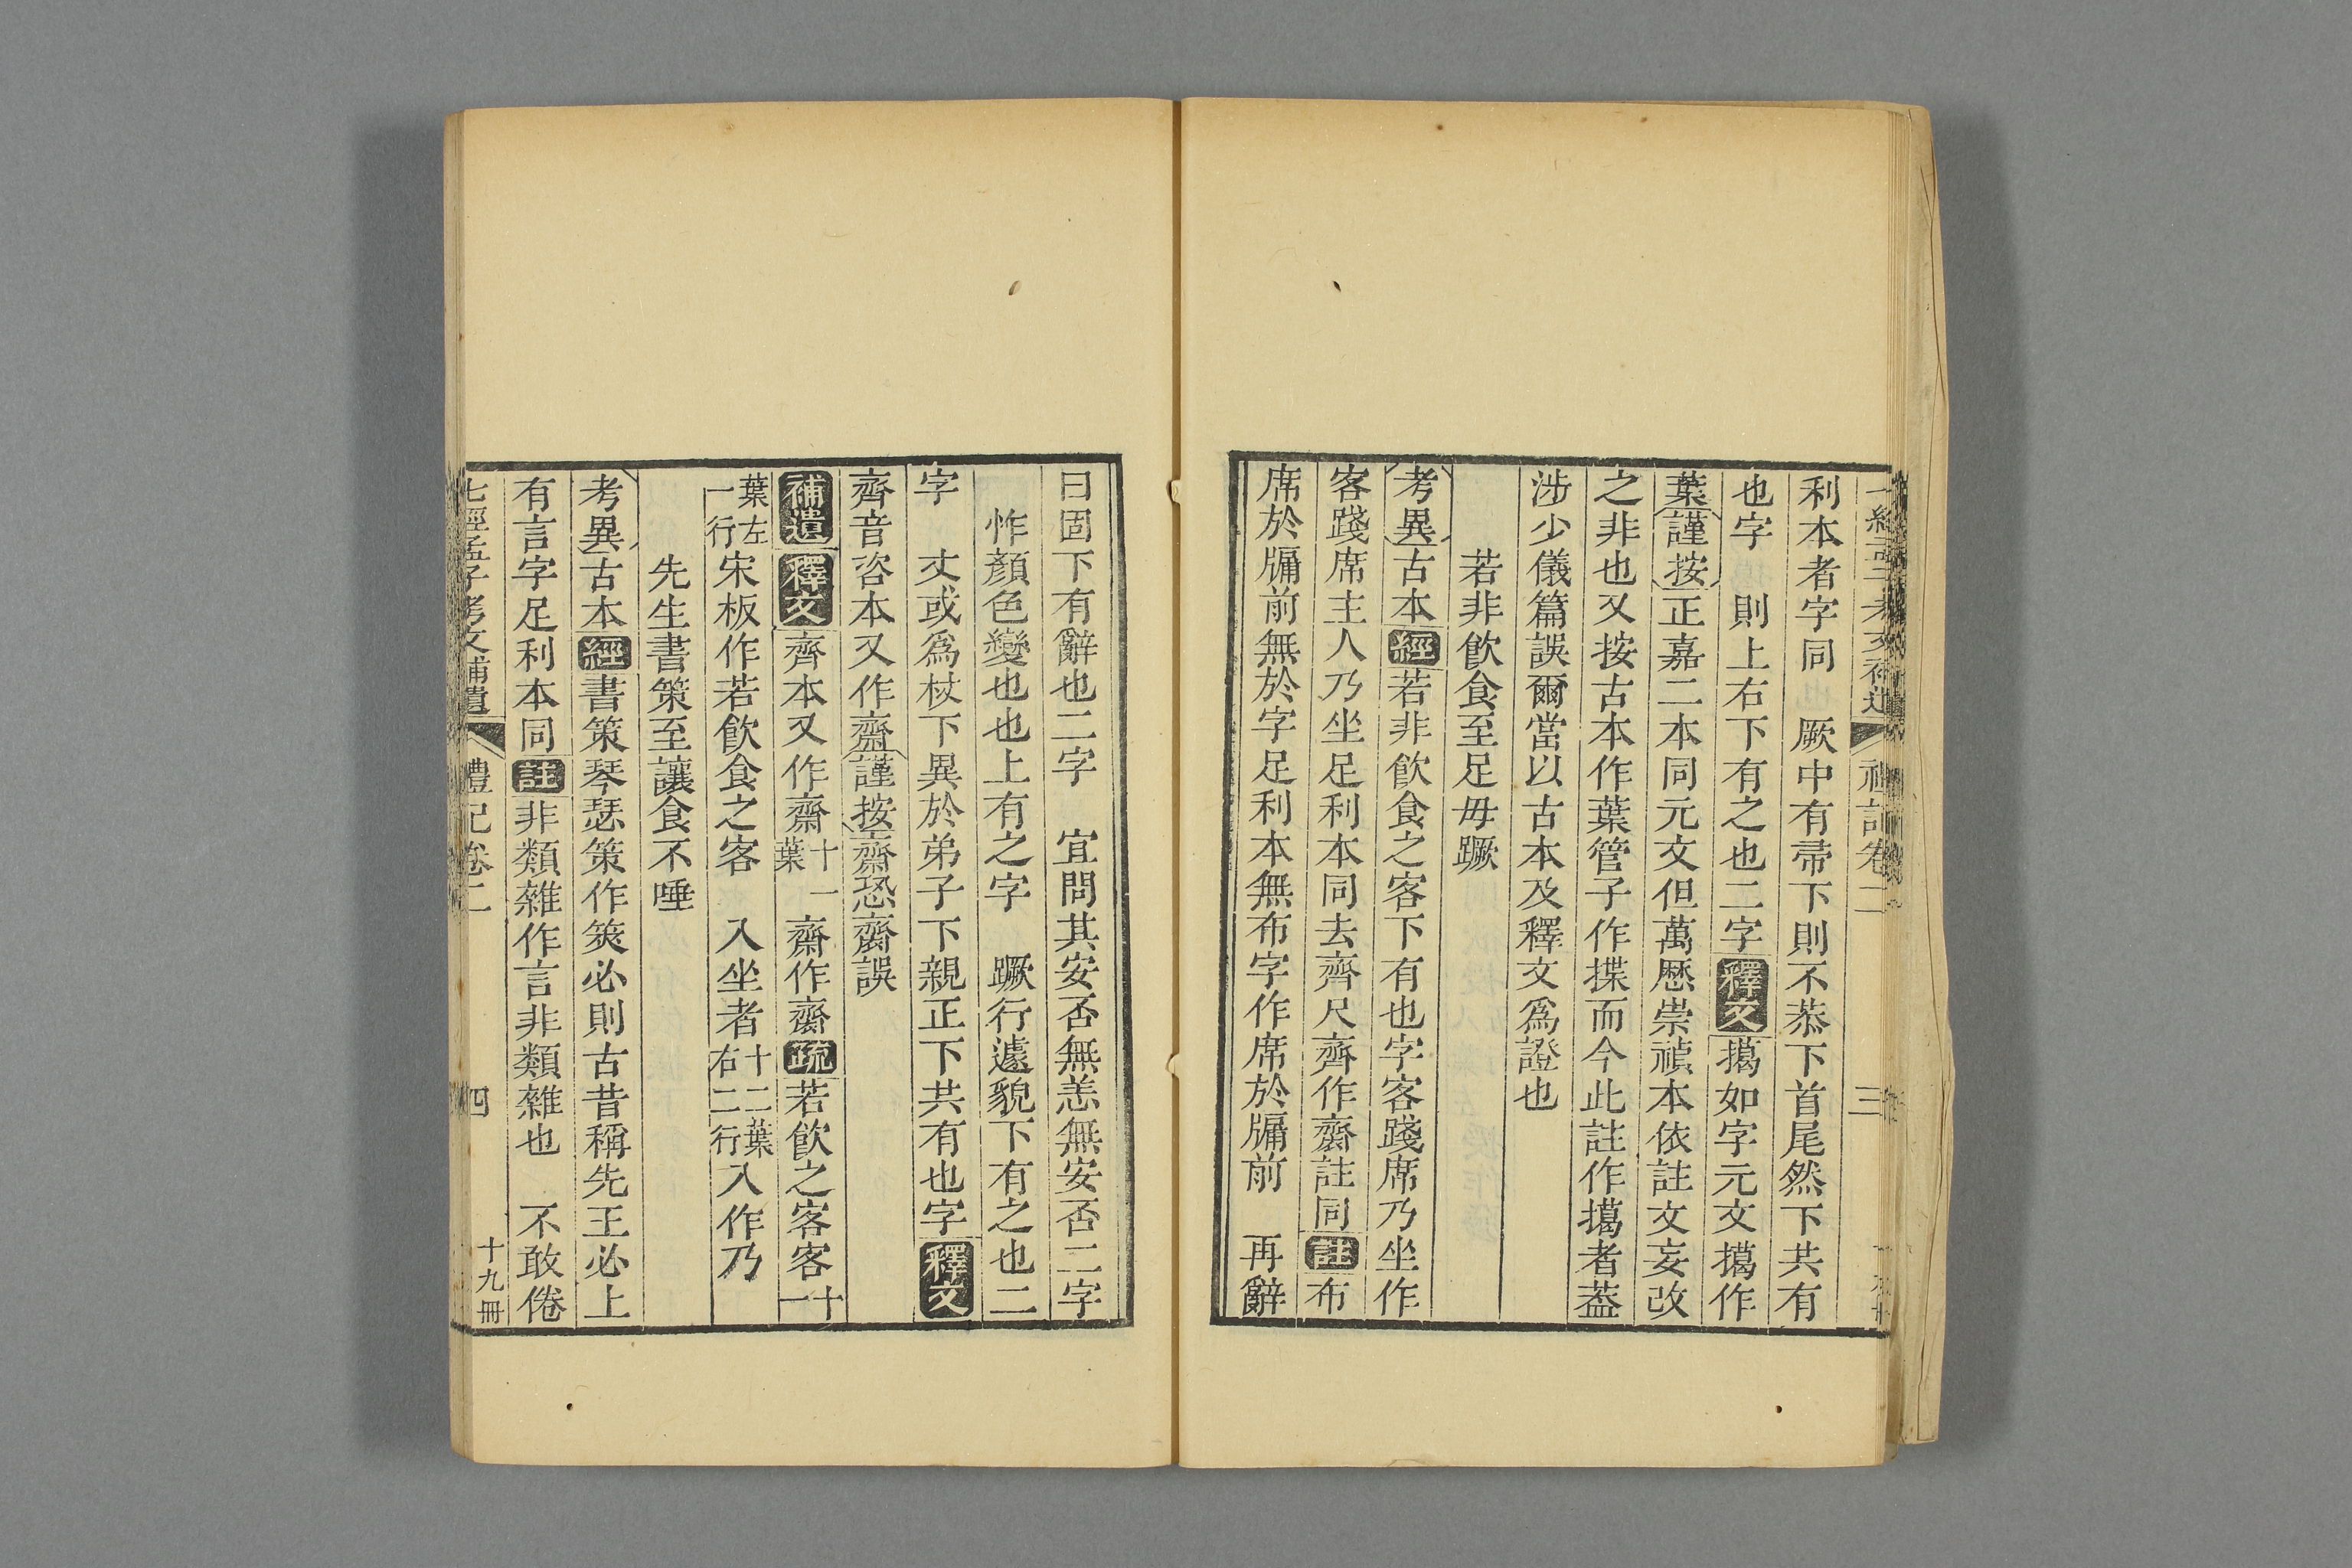 利本者字同　厥中有帚下則不恭下首尾然下共有
也字　則上右下有之也二字釋文擖如字元文擖作
葉謹按正嘉二本同元文但萬厯崇禎本依註文妄改
之非也又按古本作葉管子作揲而今此註作擖者葢
涉少儀篇誤爾當以古本及釋文爲證也
若非飮食至足毋蹶
考異古本經若非飮食之客下有也字客踐席乃坐作
客踐席主人乃坐足利本同去齊尺齊作齋註同註布
席於牖前無於字足利本無布字作席於牖前　再辭
曰固下有辭也二字　宜問其安否無恙無安否二字
怍顏色變也也上有之字　蹶行遽貌下有之也二
字　丈或爲杖下異於弟子下親正下共有也字釋文
齊音咨本又作齋謹按齋恐齋誤
補遺釋文齊本又作齋十一葉　齋作齋疏若飮之客客十一
葉左一行宋板作若飮食之客　入坐者十二葉右二行入作乃
先生書策至讓食不唾
考異古本經書策琴瑟策作筴必則古昔稱先王必上
有言字足利本同註非類雜作言非類雜也　不敢倦
七經孟子考文補遺　禮記卷二　四　十九冊